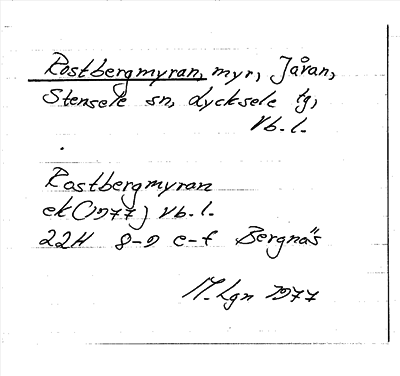 Rostbergmyran, myr, Jåvan,
Stensele sn, Lycksele tg,
Vb. l.
Rostbergmyran
ek (1977) Vb. l.
22H 8-9 e-f Bergnäs
M. Lgn 1977